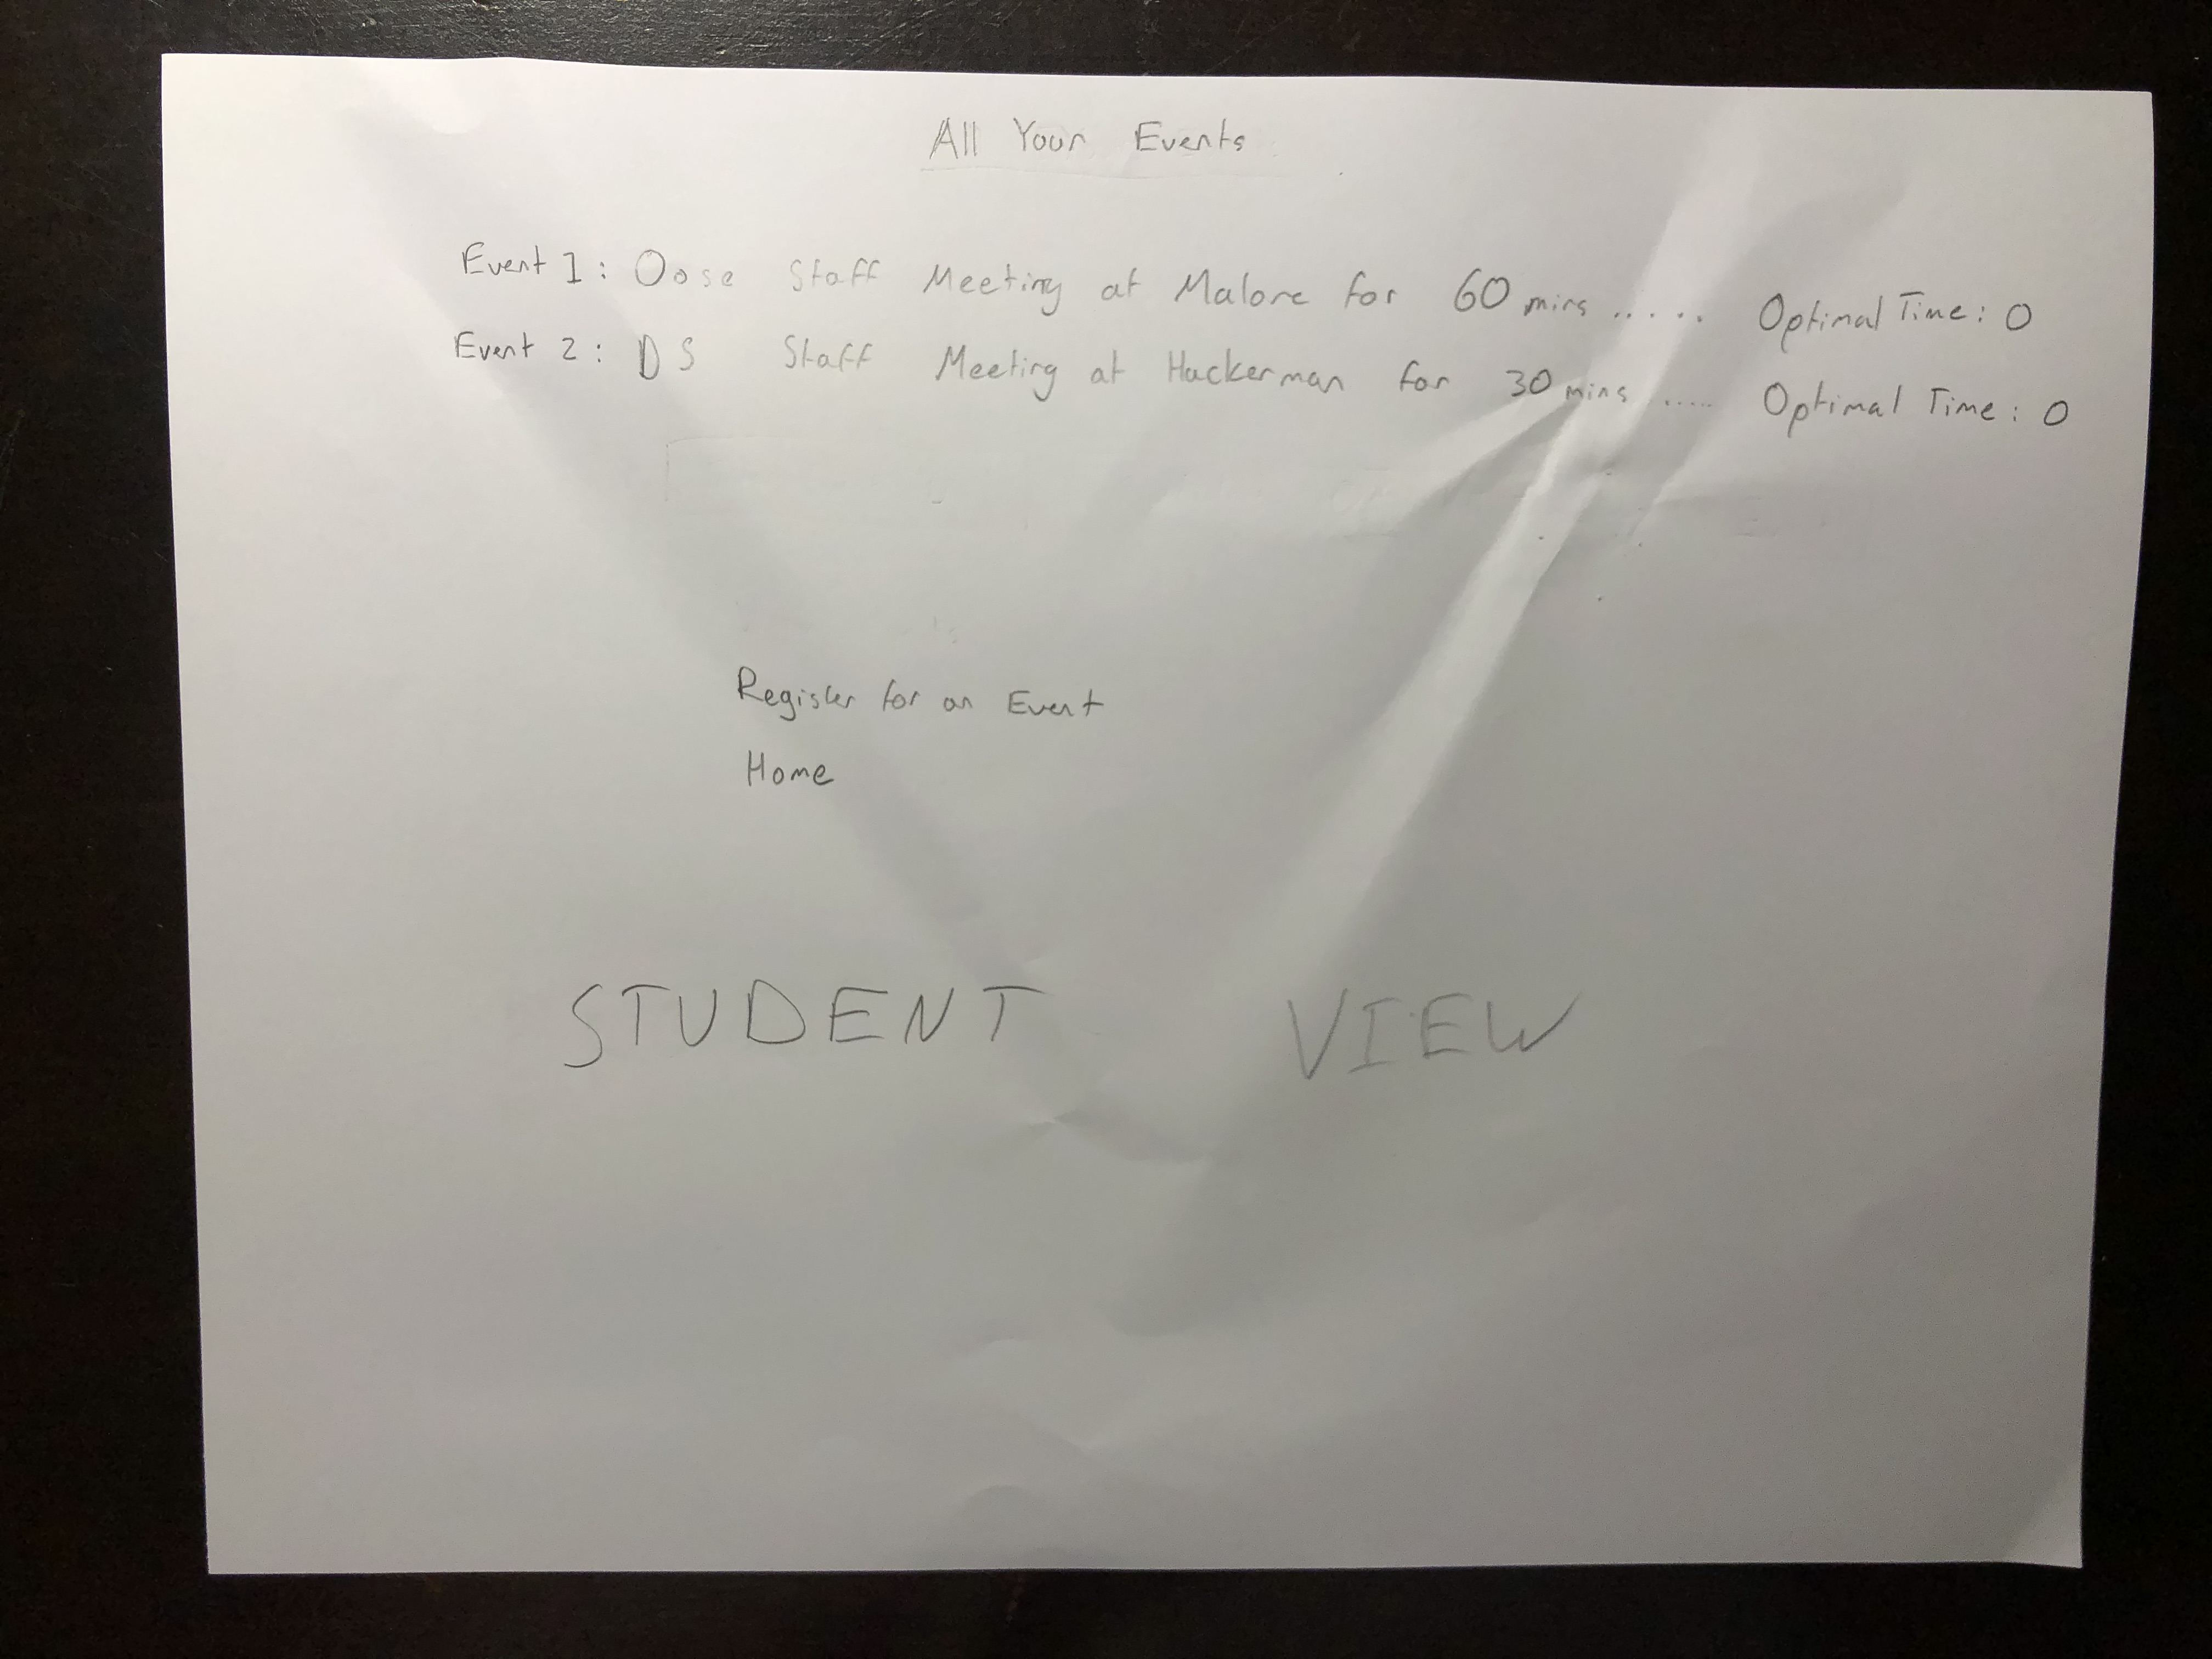 All Your Events
Event 1: Oose Staff Meeting at Malone for 60 mins ..... Optimal Time: 0
Event 2: DS Staff Meeting at Hackerman for 30 mins ..... Optimal Time: 0
Register for an Event
Home
STUDENT VIEW